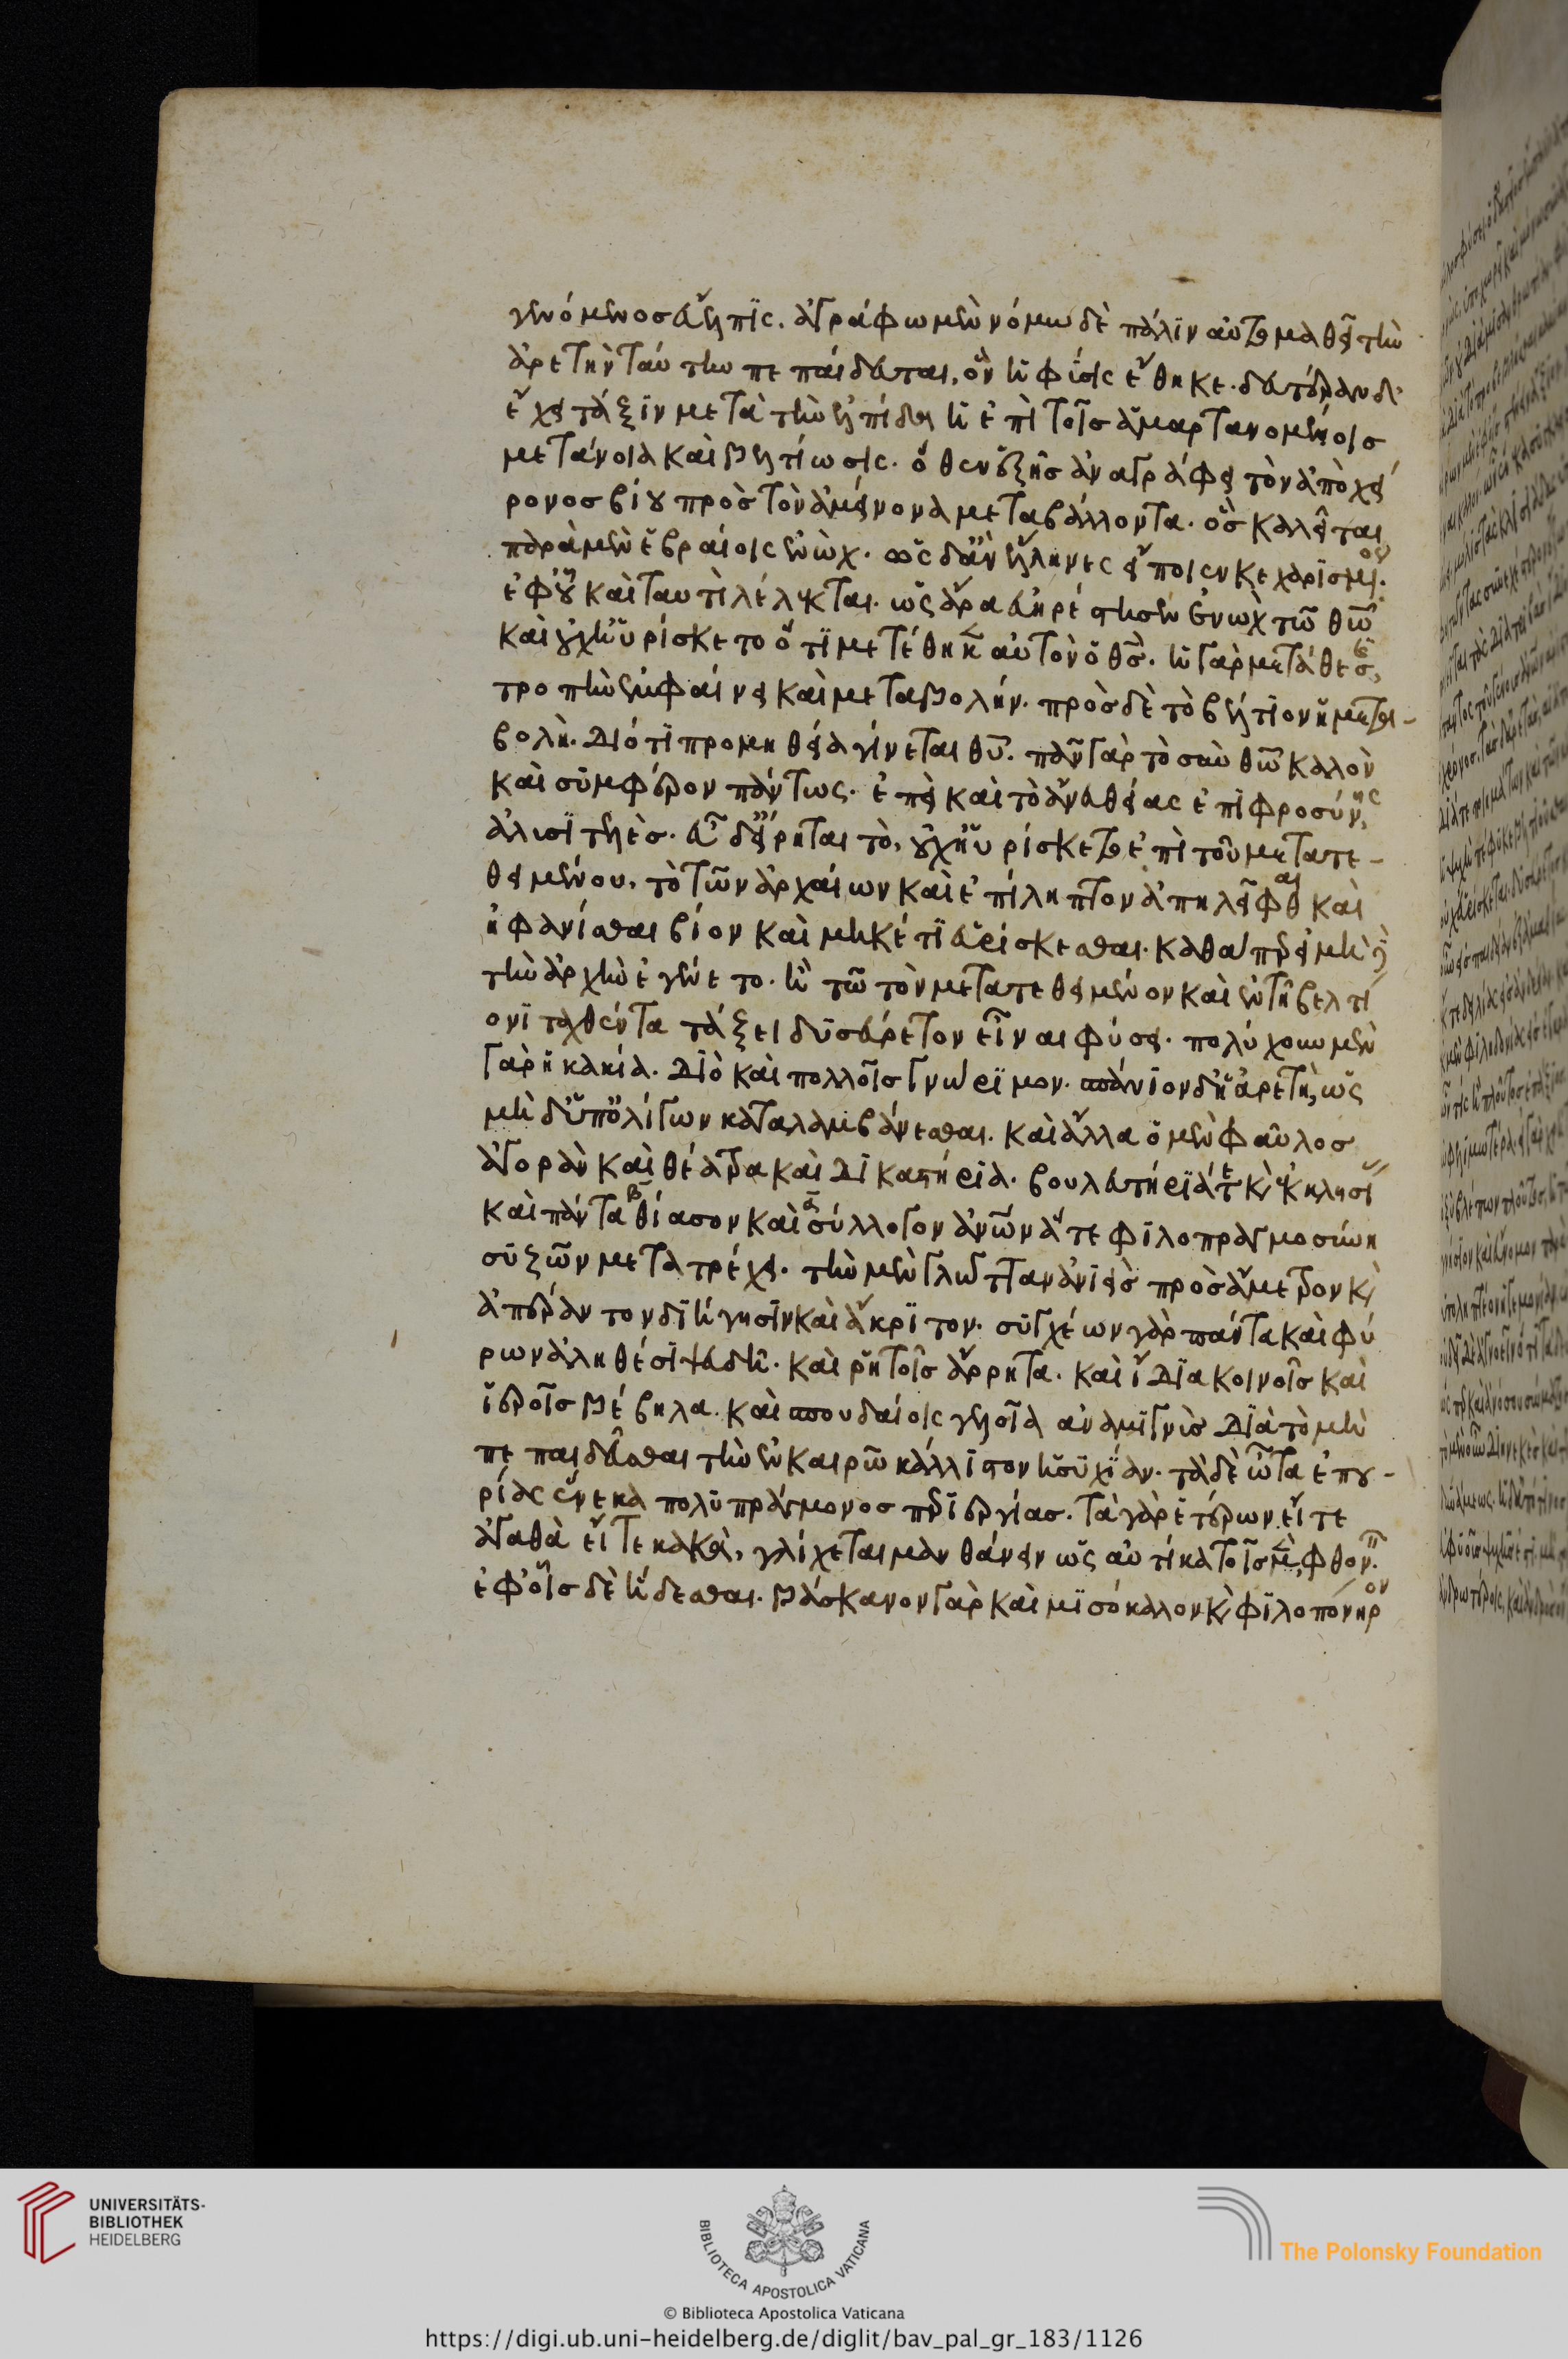 γενόμενος εὔελπις. ἀγράφω μὲν νόμω δὲ πάλϊν αὐτομαθεῖ τὴν
ἀρετὴν ταύτην πεπαίδευται, ὃν ἡ φύσις ἔθηκε. δευτέραν δ'
ἔχει τάξϊν μετὰ τὴν ἐλπίδα ἡ ἐπὶ τοῖς ἁμαρτανομένοις
μετάνοια καὶ βελτίωσις. ὅθεν ἑξῆς ἀναγράφει τὸν ἀπὸ χεί
ρονος βίου πρὸς τὸν ἀμείνονα μεταβάλλοντα. ὃς καλεῖται
παρὰ μὲν ἑβραίοις ἐνώχ. ὡς δ' ἂν ἕλληνες εἴποιεν κεχαρϊσμένος.
ἐφ' οὗ καὶ ταυτὶ λέλεκται. ὡς ἄρα εὐηρέστησεν ἐνὼχ τῶ θω
καὶ οὐχ ηὑρίσκετο ὅτϊ μετέθηκεν αὐτὸν ὁ θς. ἡ γὰρ μετάθεσις
τροπὴν ἐμφαίνει καὶ μεταβολήν. πρὸς δὲ τὸ βέλτϊον ἡ μετα
βολὴ. διότϊ προμηθεία γίνεται θυ. πᾶν γὰρ τὸ σὺν θω καλὸν
καὶ σϋμφέρον πάντως. ἐπεὶ καὶ τὸ ἄνευ θείας ἐπϊφροσύνης
ἀλυσϊτελὲς. εὖ δ' εἴρηται τὸ, οὐχ ηὑρίσκετο ἐπὶ τοῦ μετατε
θειμένου. τὸ τῶν ἀρχαίων καὶ ἐπίληπτον ἀπηλεῖφθαι καὶ
ἠφανίσθαι βίον καὶ μηκέτϊ εὑρίσκεσθαι. καθάπερ εἰ μὴ
τὴν ἀρχὴν ἐγένετο. ἢ τῶ τὸν μετατεθειμένον καὶ ἐν τῆ βελτί
ονϊ ταχθέντα τάξει δϋσεύρετον εἶναι φύσει. πολύχουν μὲν
γὰρ ἡ κακία. δϊὸ καὶ πολλοῖς γνώρϊμον. σπάνϊον δ' ἡ ἀρετὴ, ὡς
μὴ δ' ὑπ' ὀλίγων καταλαμβάνεσθαι. καὶ ἄλλα ὁ μὲν φαῦλος
ἀγορὰν καὶ θέατρα καὶ δϊκαστήρϊα. βουλευτήρϊά τε κ(αὶ) ἐκκλησί
καὶ πάντα θίασον καὶ σύλλογον ἀνων ἅτε φϊλοπραγμοσύνη
σϋζῶν μετατρέχει. τὴν μὲν γλῶτταν ἀνϊεὶς πρὸς ἄμετρον κ(αὶ)
ἀπέραντον δϊήγησϊν καὶ ἄκρϊτον. σϋγχέων γὰρ πάντα καὶ φύ
ρων ἀληθέσϊ ψευδῆ. καὶ ῥητοῖς ἄρρητα. καὶ ἴδϊα κοινοῖς καὶ
ἱεροῖς βέβηλα. καὶ σπουδαίοις γελοῖα ἀναμϊγνὺς δϊὰ τὸ μὴ
πεπαιδεῦσθαι τὴν ἐν καιρῶ κάλλϊστον ἡσϋχΐαν. τὰ δὲ ὦτα ἐπου
ρίσας ἕνεκα πολϋπράγμονος περϊεργίας. τὰ γὰρ ἑτέρων εἴτε
ἀγαθὰ εἴτε κακὰ, γλίχεται μανθάνειν ὡς αὐτίκα τοῖς μὲν φθον
ἐφ' οἷς δὲ ἥδεσθαι. βάσκανον γὰρ καὶ μϊσόκαλον κ(αὶ) φϊλοπόνηρον
UNIVERSITÄTS-
BIBLIOTHEK
HEIDELBERG
BIBLIOTECA APOSTOLICA VATICANA
The Polonsky Foundation
© Biblioteca Apostolica Vaticana
https://digi.ub.uni-heidelberg.de/diglit/bav_pal_gr_183/1126